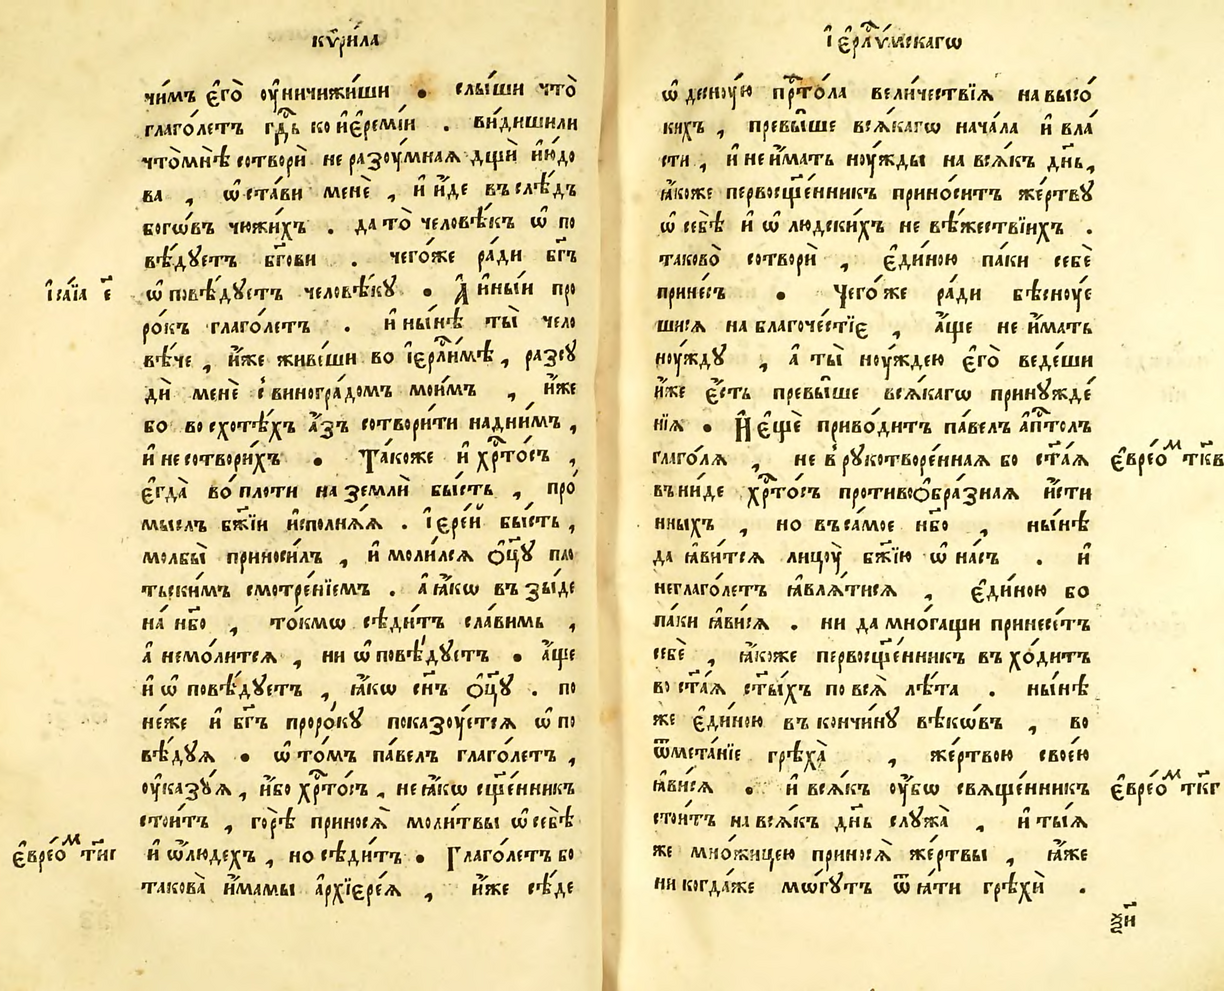 кѷри́ла
чи́мъ є҆го̀ ᲂу҆ничижи́ши . слы́ши что̀
глаго́летъ гдⷭ҇ь ко і҆єремі́и . ви́дишили
что̀мнѣ сотворѝ неразоу́мная дщѝ ию҆до
ва , ѡ҆ста́ви менѐ , и҆ и҆́де въслѣ́дъ
богѡ́въ чюжи́хъ . дато̀ человѣ́къ ѿ по
вѣ́дуетъ бг҃ови . чего́же ра́ди бг҃ъ
І҆са́їа є҃
ѿповѣ́дуетъ человѣ́ку . А҆ и҆ны́и про
ро́къ глаго́летъ . и҆ ны́нѣ ты̀ чело
вѣ́че , и҆́же живе́ши во і҆єрⷭ҇ли́мѣ , разсу
дѝ менѐ с виногра́домъ мои́мъ , и҆́же
бо восхотѣ́хъ а҆́зъ сотвори́ти надни́мъ ,
и҆ несотвори́хъ . Та́коже и҆ хрⷭ҇то́съ ,
є҆гда̀ во́ плоти наземлѝ бы́сть , про
мыслъ бж҃їи и҆сполня́я . і҆ере́й бы́сть ,
молбы̀ приноси́лъ , и҆ моли́лся ѻ҆ц҃у пло
тьски́мъ смотре́нїемъ . а҆ ꙗ҆́кѡ въ зы́де
на́ нб҃о , то́кмѡ сѣди́тъ сла́вимь ,
а҆ немо́лится , ни ѿповѣ́дуетъ . а҆́ще
и҆ ѿповѣ́дуетъ , ꙗ҆́кѡ сн҃ъ ѻ҆ц҃у . по
не́же и҆ бг҃ъ проро́ку показоу́ется ѿ по
вѣ́дуя . ѡ҆ то́мъ па́велъ глаго́летъ ,
ᲂу҆казу́я , и҆́бо хрⷭ҇то́съ , неꙗ҆́кѡ сщ҃е́нникъ
стои́тъ , го́рѣ принося̀ моли́твы ѡ҆себѣ̀
Є҆вре́оⷨ ти҃г
и҆ ѡ҆лю́дехъ , но сѣди́тъ . Глаго́летъ бо
такова̀ и҆́мамы а҆рхїере́я , и҆́же сѣ́де
І҆єрⷭ҇ли́мскагѡ
ѡ҆ десноу́ю прⷭ҇то́ла вели́чествїя навысо́
кихъ , превы́ше вся́кагѡ нача́ла и҆ вла́
сти , и҆ неи҆́мать ноу́жды нався́къ дн҃ь,
ꙗ҆́коже первосщ҃е́нникъ прино́ситъ же́ртву
ѡ҆ себѣ̀ и҆ ѡ҆ людски́хъ не вѣ́жествїихъ .
таково̀ сотворѝ , є҆ди́ною па́ки себѐ
прине́съ . Чего́ же ра́ди бѣсноу́е
шися на благоче́стїе , а҆́ще не и҆́мать
ноу́жду , а҆ ты̀ ноу́ждею є҆го̀ веде́ши
и҆́же є҆́сть превы́ше вся́кагѡ принужде́
нїя . И҆ є҆щѐ приво́дитъ па́велъ а҆пⷭ҇толъ
глаго́ля , не в рукотворе́нная бо ст҃а́я
Є҆вре́оⷨ тк҃в
въни́де хрⷭ҇то́съ противоѻ҆бра́зная и҆́сти
нныхъ , но въса́мое нб҃о , ны́нѣ
да ꙗ҆ви́тся лицоу̀ бж҃їю ѡ҆ на́съ . и҆
неглаго́летъ ꙗ҆вля́тися , є҆ди́ною бо
па́ки ꙗ҆ви́ся . ни да мно́гащи принесе́тъ
себѐ , ꙗ҆́коже первосщ҃е́нникъ въ хо́дитъ
во ст҃а́я ст҃ы́хъ по вся̀ лѣ́та . ны́нѣ
же є҆ди́ною въ кончи́ну вѣкѡ́въ , во
ѿмета́нїе грѣха̀ , же́ртвою свое́ю
ꙗ҆ви́ся . и҆ вся́къ ᲂу҆́бѡ свяще́нникъ
Є҆вре́оⷨ тк҃г
стои́тъ на вся́къ дн҃ь служа̀ , и҆ ты́я
же мно́жицею принося̀ же́ртвы , ꙗ҆́же
ни когда́же мо́гутъ ѿ ꙗ҆ти грѣхѝ .
н҃и